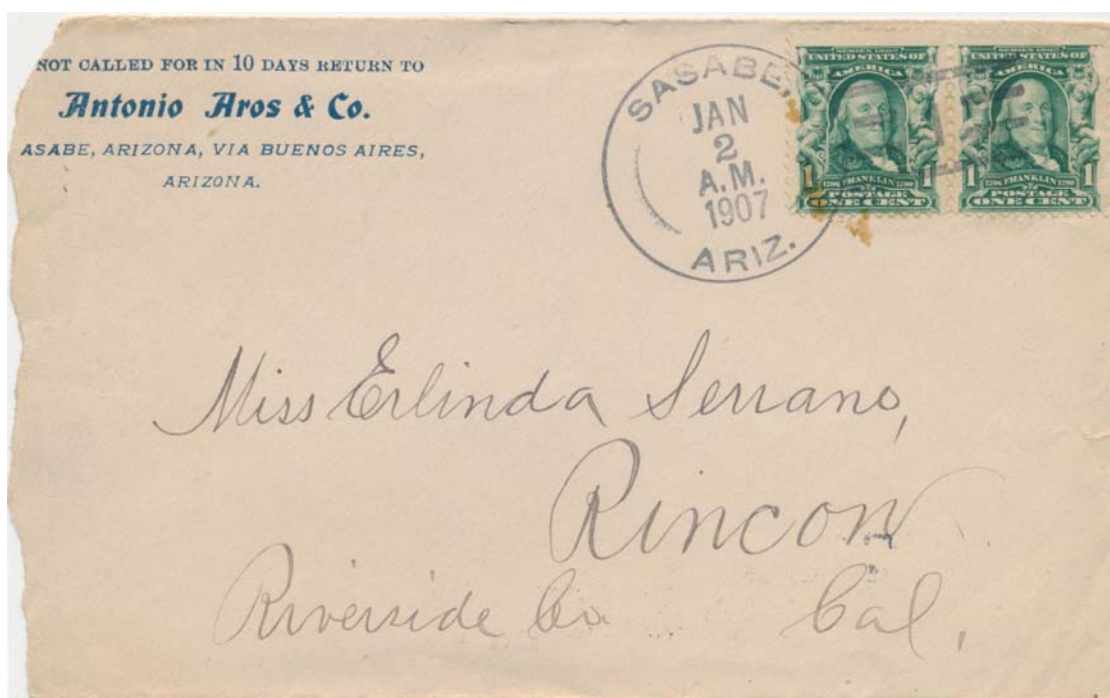 NOT CALLED FOR IN 10 DAYS RETURN TO
Antonio Aros & Co.
ASABE, ARIZONA, VIA BUENOS AIRES,
ARIZONA.
SASABE,
JAN
2
A.M.
1907
ARIZ.
SERIES 1902
UNITED STATES OF
AMERICA
1706 FRANKLIN 1790
1 POSTAGE 1
ONE CENT
SERIES 1902
UNITED STATES OF
AMERICA
1706 FRANKLIN 1790
1 POSTAGE 1
ONE CENT
Miss Erlinda Serrano,
Rincon
Riverside Co. Cal.